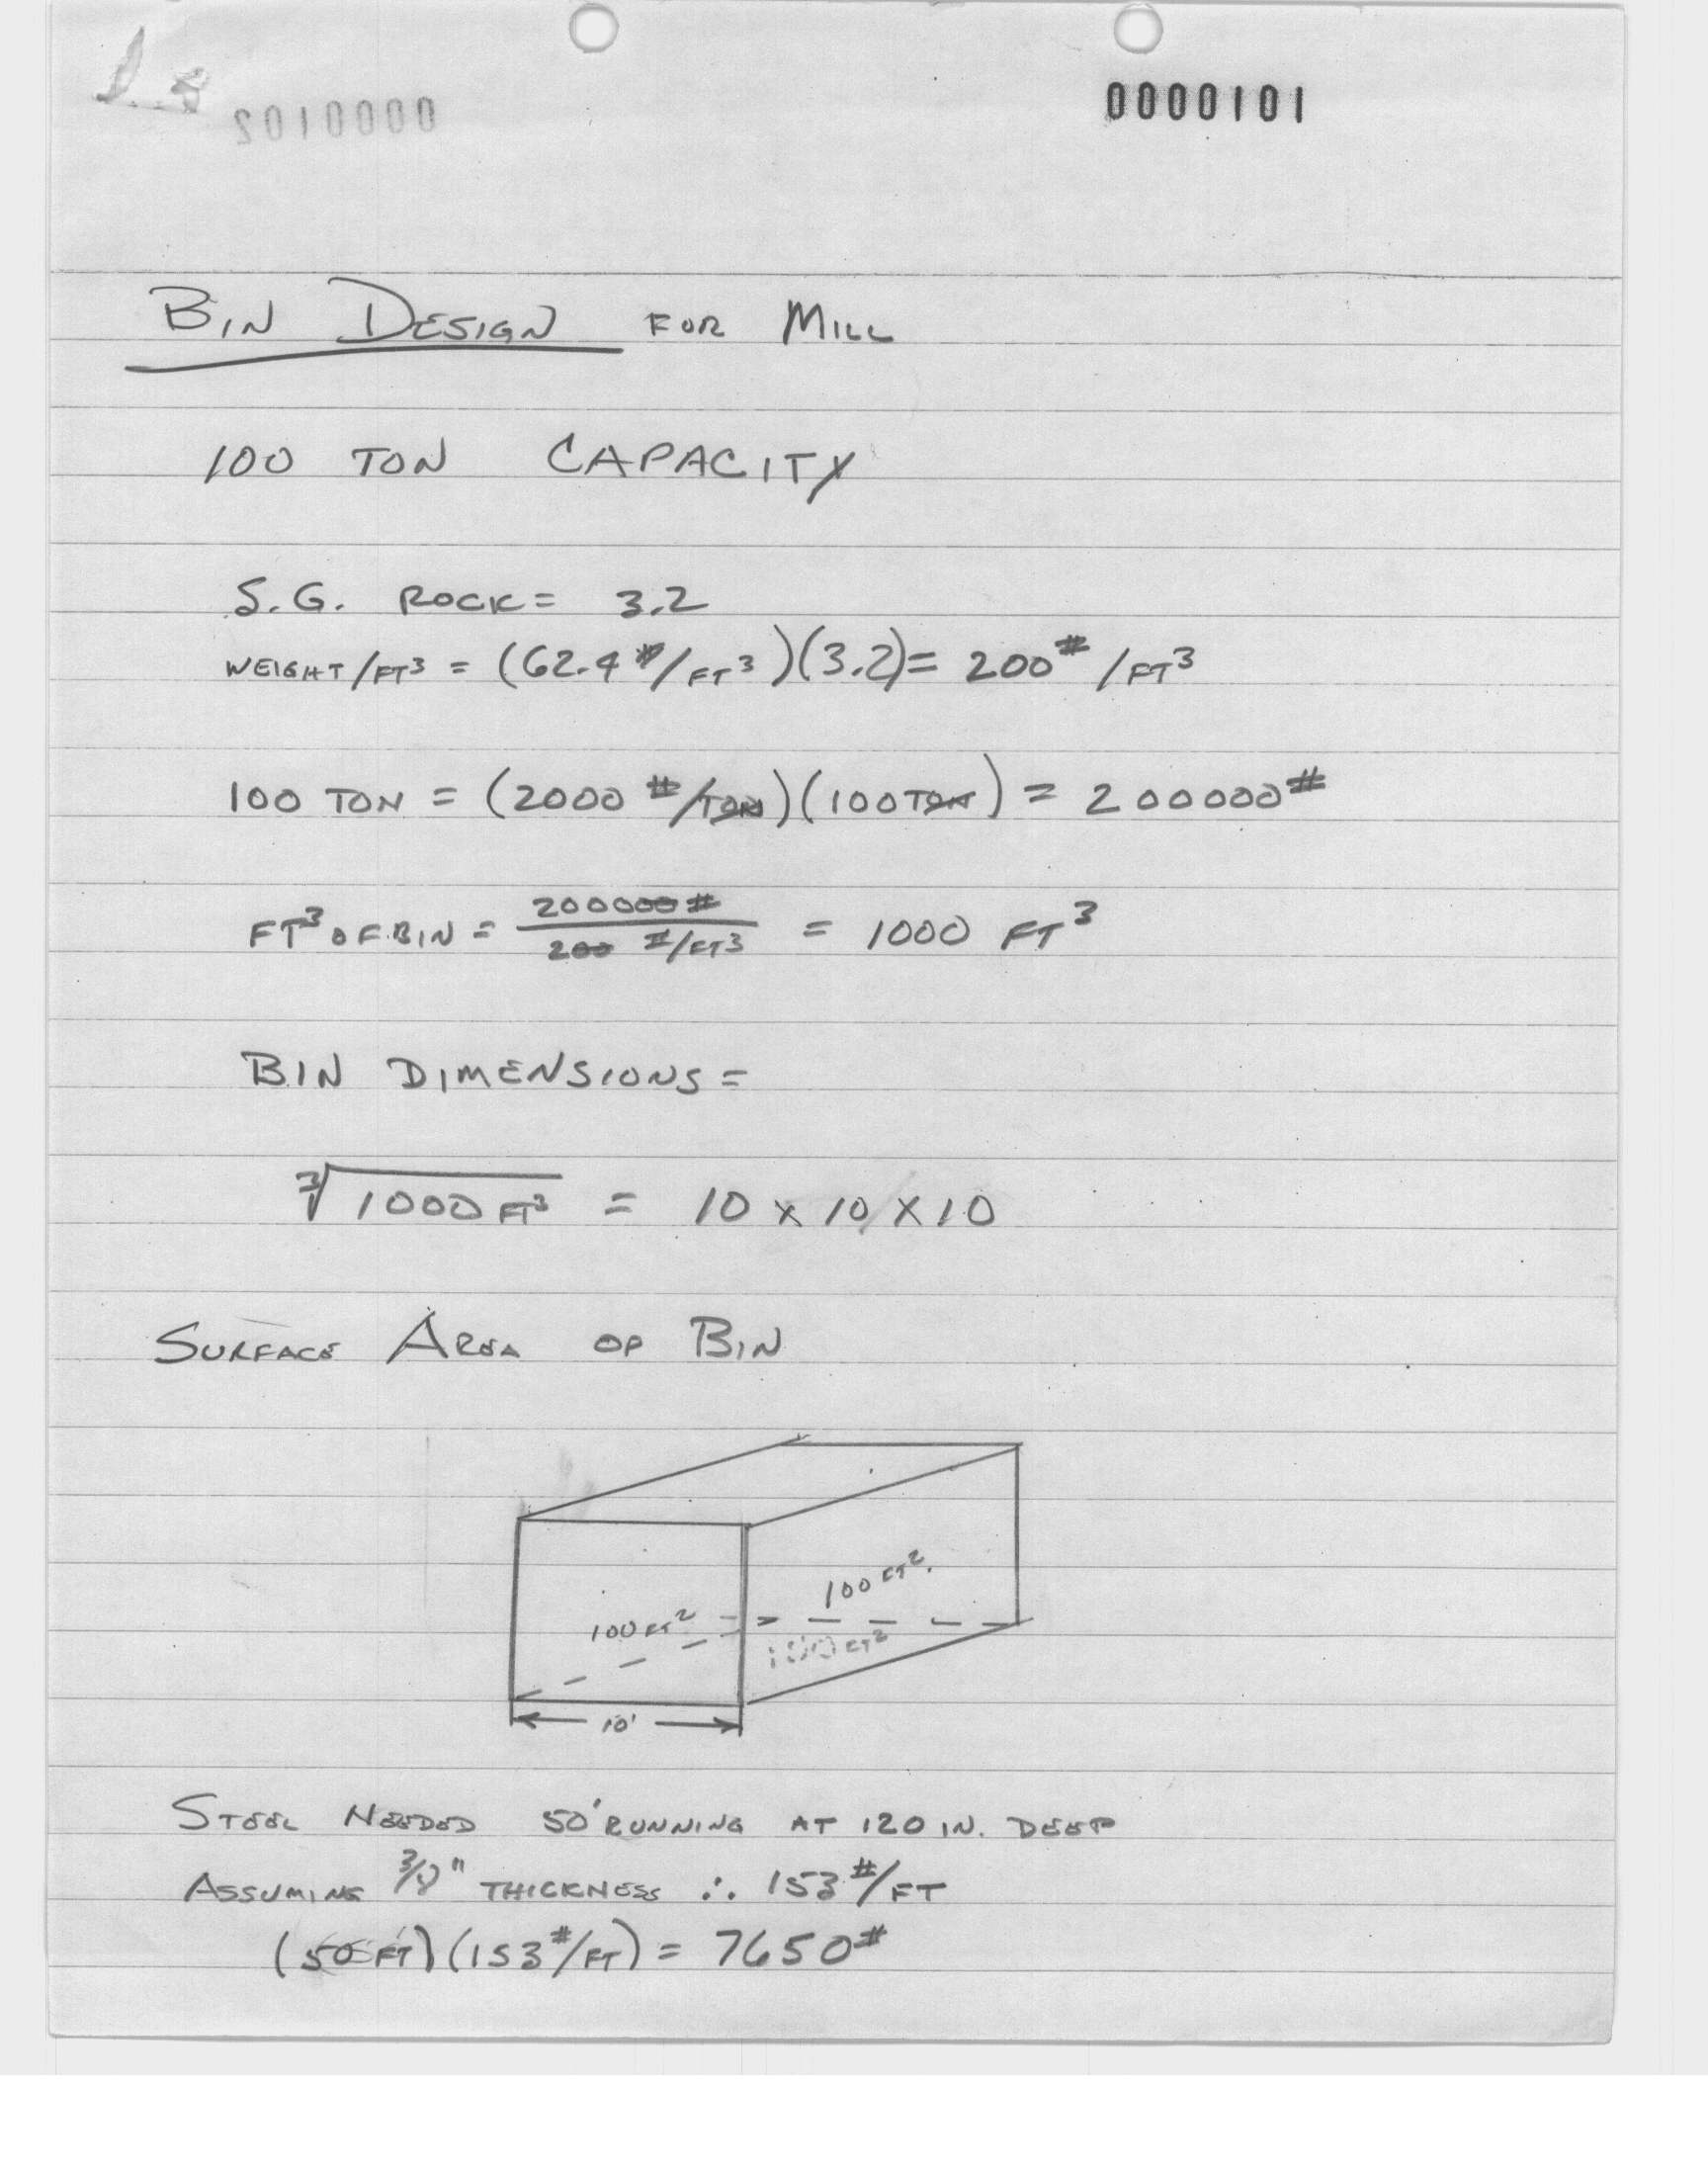 0000101
0000102
BIN DESIGN FOR MILL
100 TON CAPACITY
S.G. ROCK = 3.2
WEIGHT/FT³ = (62.4 #/FT³)(3.2) = 200 #/FT³
100 TON = (2000 #/TON)(100 TON) = 200000 #
FT³ OF BIN = 200000 # / 200 #/FT³ = 1000 FT³
BIN DIMENSIONS =
∛1000 FT³ = 10 x 10 x 10
SURFACE AREA OF BIN
100 FT²
100 FT²
100 FT²
10'
STEEL NEEDED 50' RUNNING AT 120 IN. DEEP
ASSUMING 3/8" THICKNESS ∴ 153 #/FT
(50 FT)(153 #/FT) = 7650 #